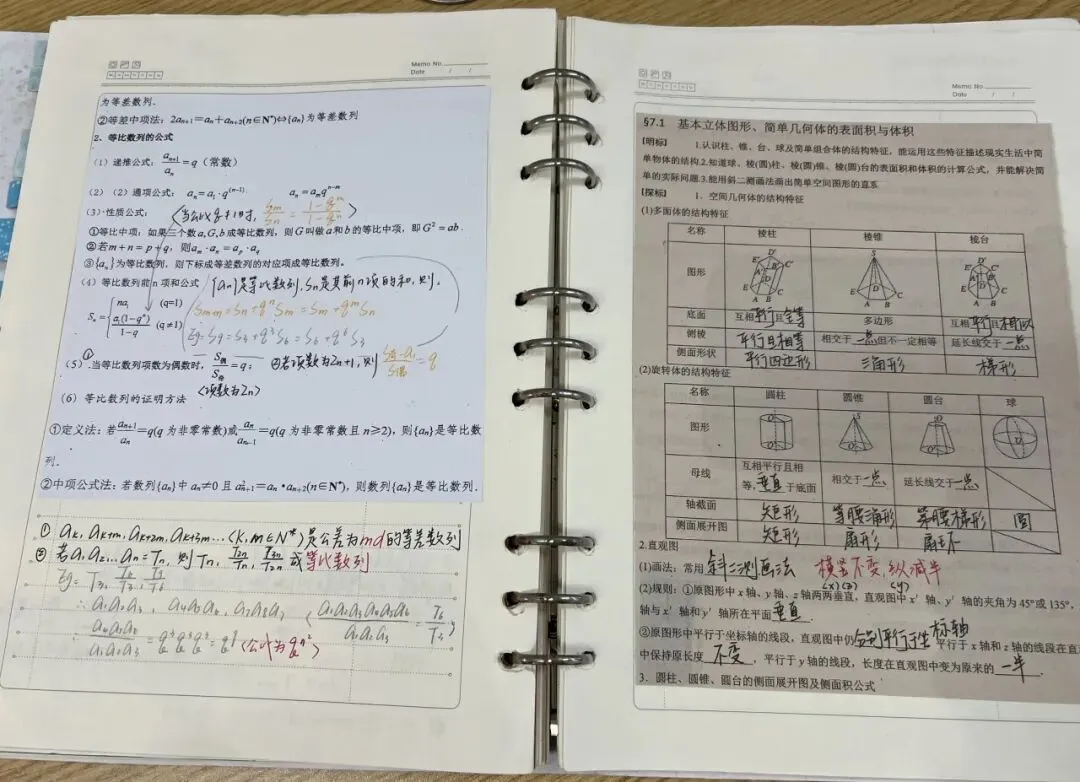 Memo No.
Date / /
为等差数列.
②等差中项法：2aₙ₊₁=aₙ+aₙ₊₂(n∈N*)⇔{aₙ}为等差数列
2、等比数列的公式
（1）递推公式：aₙ₊₁/aₙ=q（常数）
（2）（2）通项公式：aₙ=a₁·q⁽ⁿ⁻¹⁾ aₙ=aₘqⁿ⁻ᵐ
（3）性质公式：〈当公比q≠1时, Sm/Sn=(1-qᵐ)/(1-qⁿ)〉
①等比中项：如果三个数a,G,b成等比数列，则G叫做a和b的等比中项，即G²=ab.
②若m+n=p+q，则aₘ·aₙ=aₚ·a_q
③{aₙ}为等比数列，则下标成等差数列的对应项成等比数列。
（4）等比数列前n项和公式 {an}是等比数列, Sn是其前n项的和, 则.
Sm+n=Sn+qⁿSm=Sm+qᵐSn
Sₙ={na₁ (q=1)
a₁(1-qⁿ)/(1-q) (q≠1)
Eg: S9=S3+q³S6=S6+q⁶S3
（5）①.当等比数列项数为偶数时，=q； ②若项数为2n+1, 则 =q
〈项数为2n〉
（6）等比数列的证明方法
①定义法：若aₙ₊₁/aₙ=q(q为非零常数)或aₙ/aₙ₋₁=q(q为非零常数且n≥2)，则{aₙ}是等比数
列.
②中项公式法：若数列{aₙ}中aₙ≠0且a²ₙ₊₁=aₙ•aₙ₊₂(n∈N*)，则数列{aₙ}是等比数列.
① ak, ak+m, ak+2m, ak+3m...〈k, m∈N*〉是公差为md的等差数列
② 若a₁a₂...an=Tn, 则Tn, T2n/Tn, T3n/T2n 成等比数列
Eg: T3, T6/T3, T9/T6
∴ a₁a₂a₃, a₄a₅a₆, a₇a₈a₉ 〈a₁a₂a₃a₄a₅a₆/a₁a₂a₃=T6/T3〉
∴ a₄a₅a₆/a₁a₂a₃=q³q³q³=q⁹〈公比为qⁿ²〉
Memo No.
Date / /
§7.1 基本立体图形、简单几何体的表面积与体积
【明标】 1.认识柱、锥、台、球及简单组合体的结构特征，能运用这些特征描述现实生活中简
单物体的结构.2.知道球、棱(圆)柱、棱(圆)锥、棱(圆)台的表面积和体积的计算公式，并能解决简
单的实际问题.3.能用斜二测画法画出简单空间图形的直系
【探标】 1．空间几何体的结构特征
(1)多面体的结构特征
名称 棱柱 棱锥 棱台
图形
底面 互相平行且全等 多边形 互相平行且相似
侧棱 平行且相等 相交于一点但不一定相等 延长线交于一点
侧面形状 平行四边形 三角形 梯形
(2)旋转体的结构特征
名称 圆柱 圆锥 圆台 球
图形
母线 互相平行且相等，垂直于底面 相交于一点 延长线交于一点
轴截面 矩形 等腰三角形 等腰梯形 圆
侧面展开图 矩形 扇形 扇环
2.直观图
(1)画法：常用斜二测画法 横竖不变,纵减半
(x)(z) (y)
(2)规则：①原图形中x轴、y轴、z轴两两垂直，直观图中x′轴、y′轴的夹角为45°或135°，
轴与x′轴和y′轴所在平面垂直.
②原图形中平行于坐标轴的线段，直观图中仍分别平行于坐标轴 平行于x轴和z轴的线段在直
中保持原长度不变，平行于y轴的线段，长度在直观图中变为原来的一半.
3．圆柱、圆锥、圆台的侧面展开图及侧面积公式